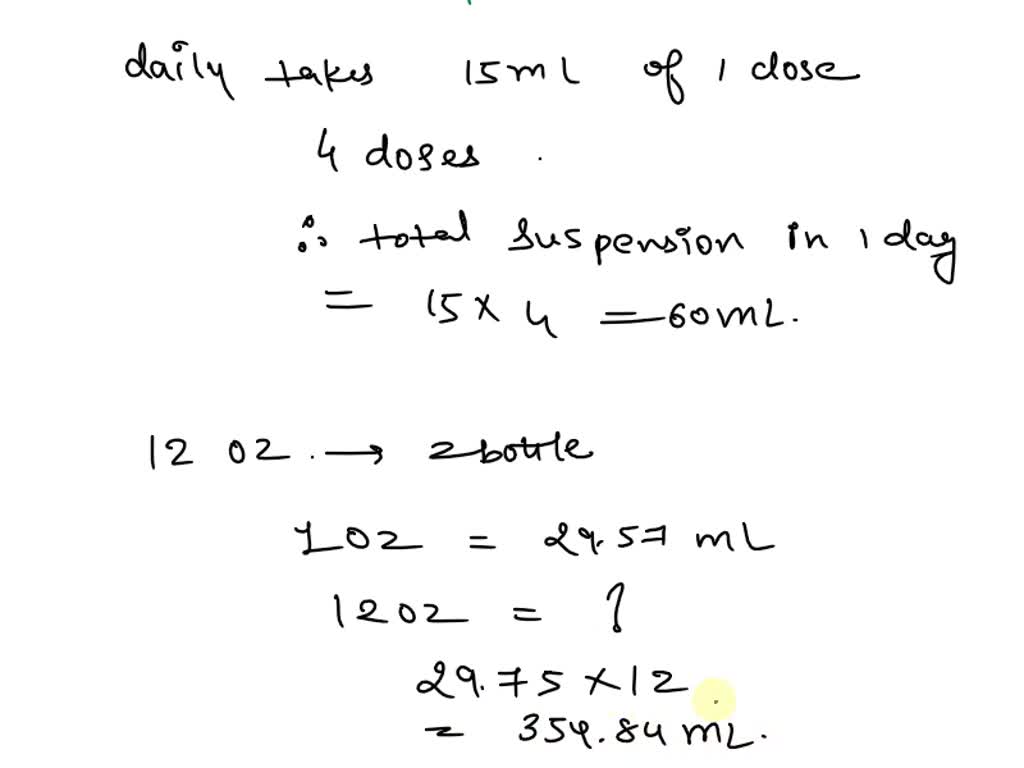 daily takes 15mL of 1 dose
4 doses .
∴ total suspension in 1 day
= 15 × 4 = 60mL.
12 oz. → 2 bottle
1 oz = 29.57 mL
12 oz = ?
29.75 × 12
= 354.84 mL.